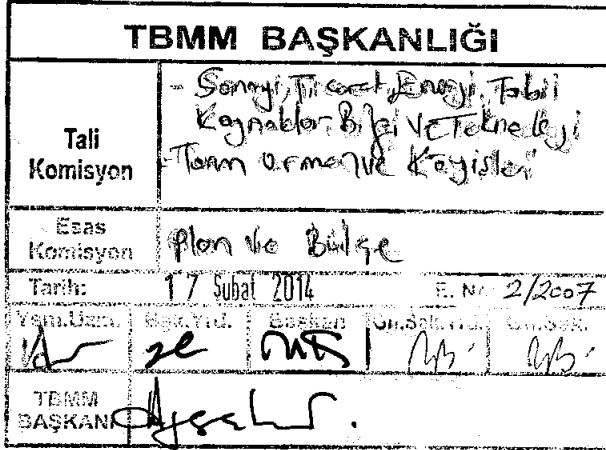 TBMM BAŞKANLIĞI
Tali
Komisyon
- Sanayi, Ticaret, Enerji, Tabii
Kaynaklar, Bilgi ve Teknoloji
- Tarım Orman ve Köyişleri
Esas
Komisyon
Plan ve Bütçe
Tarih:
17 Şubat 2014
E. No: 2/2007
Yasm.Uzm. Bşk.Yrd. Başkan Gn.Sek.Yrd. Gn.Sek.
TBMM
BAŞKANI